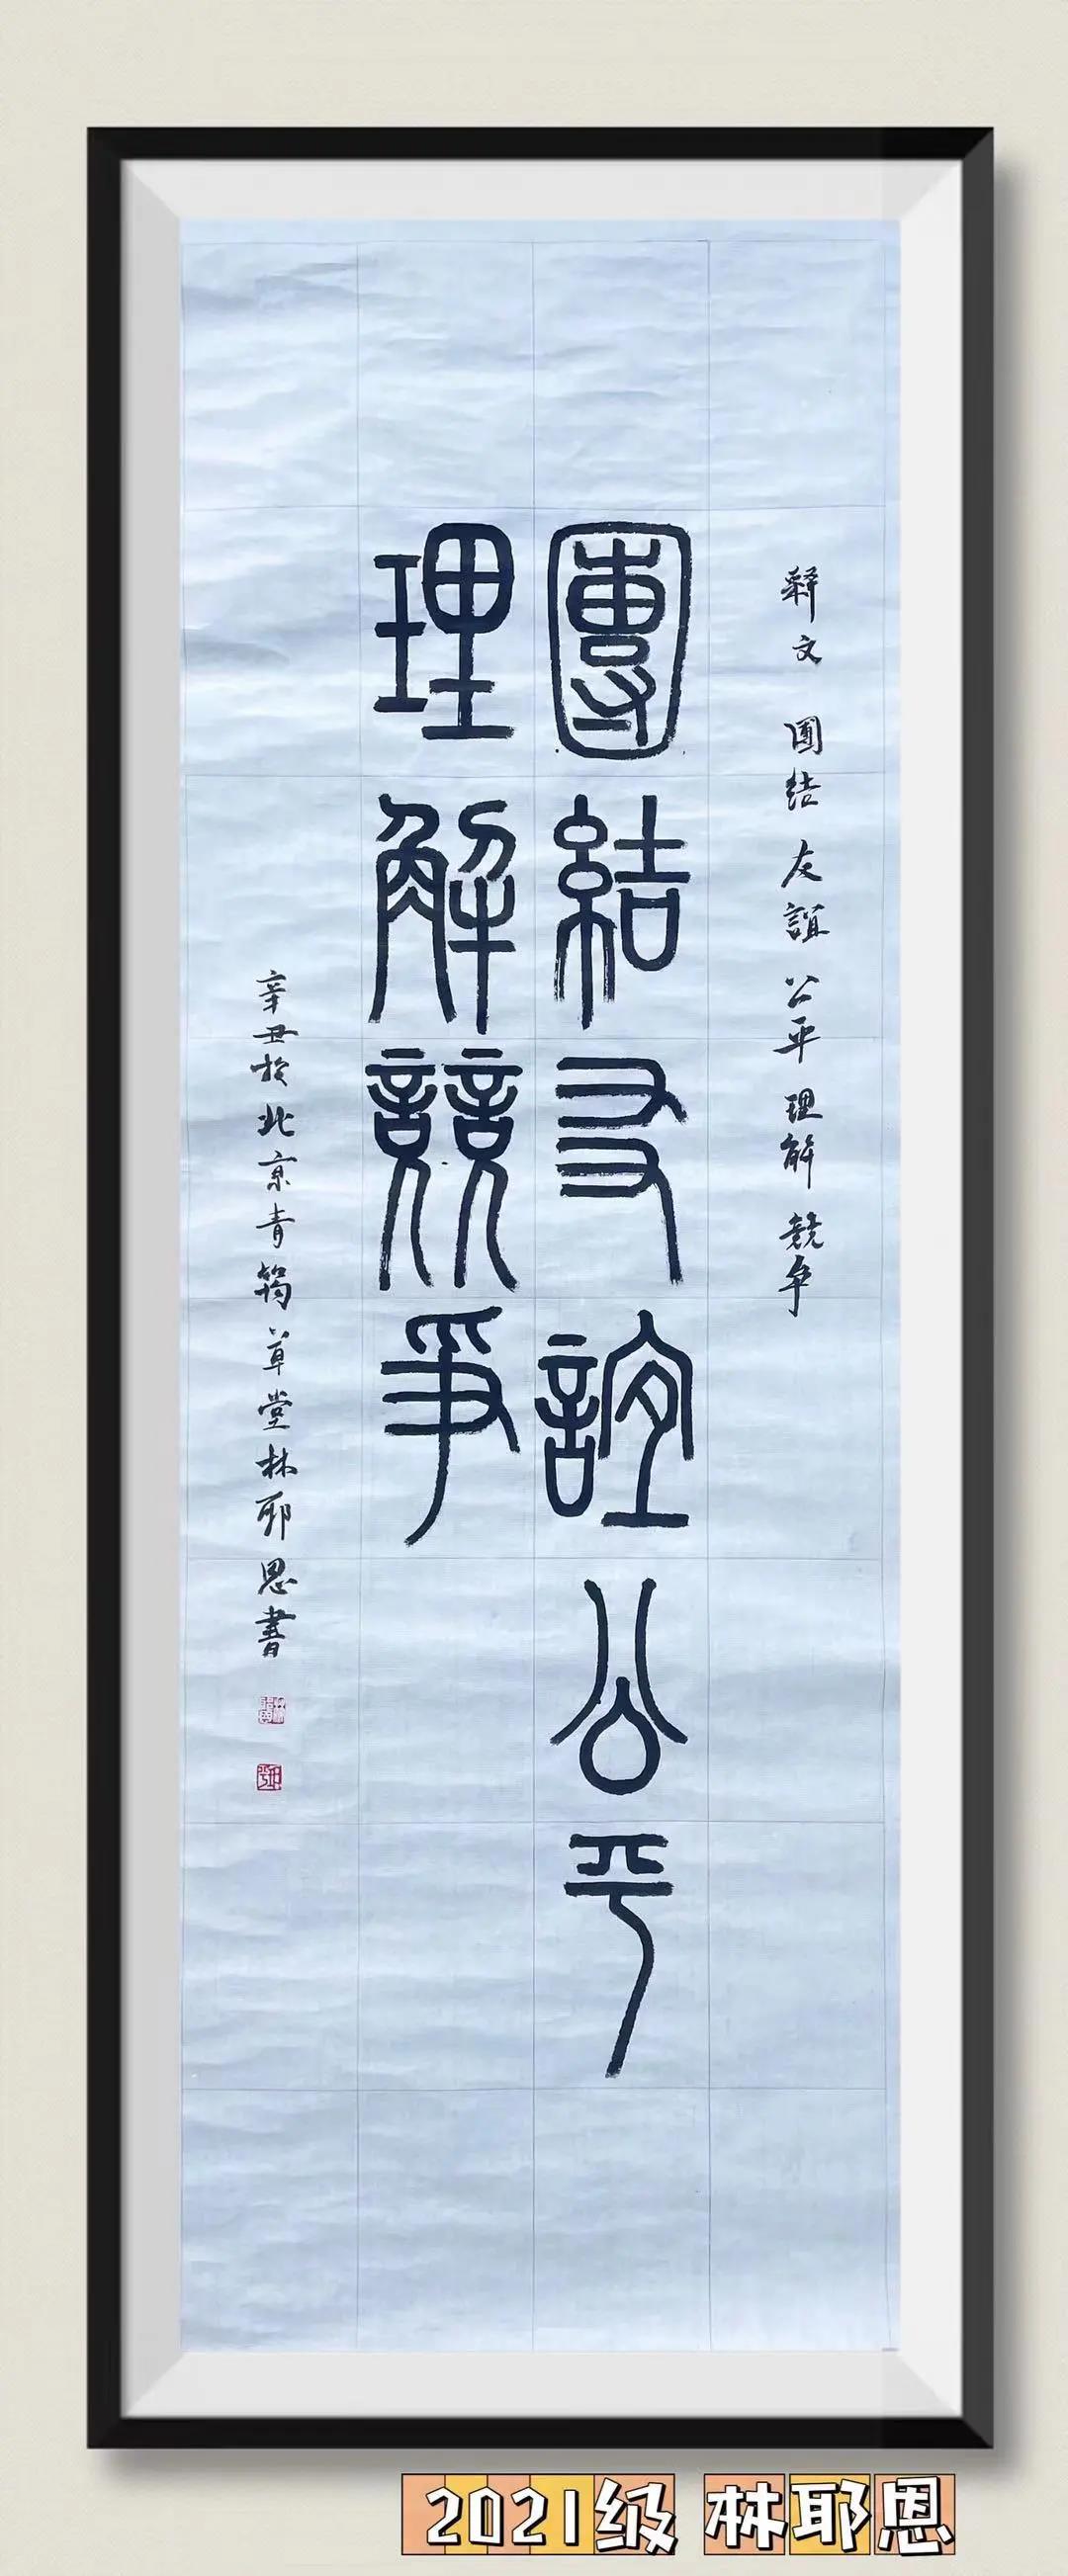 釋文 團結友誼公平理解競爭
團結友誼公平
理解競爭
辛丑於北京青筠草堂林耶恩書
2021级 林耶恩